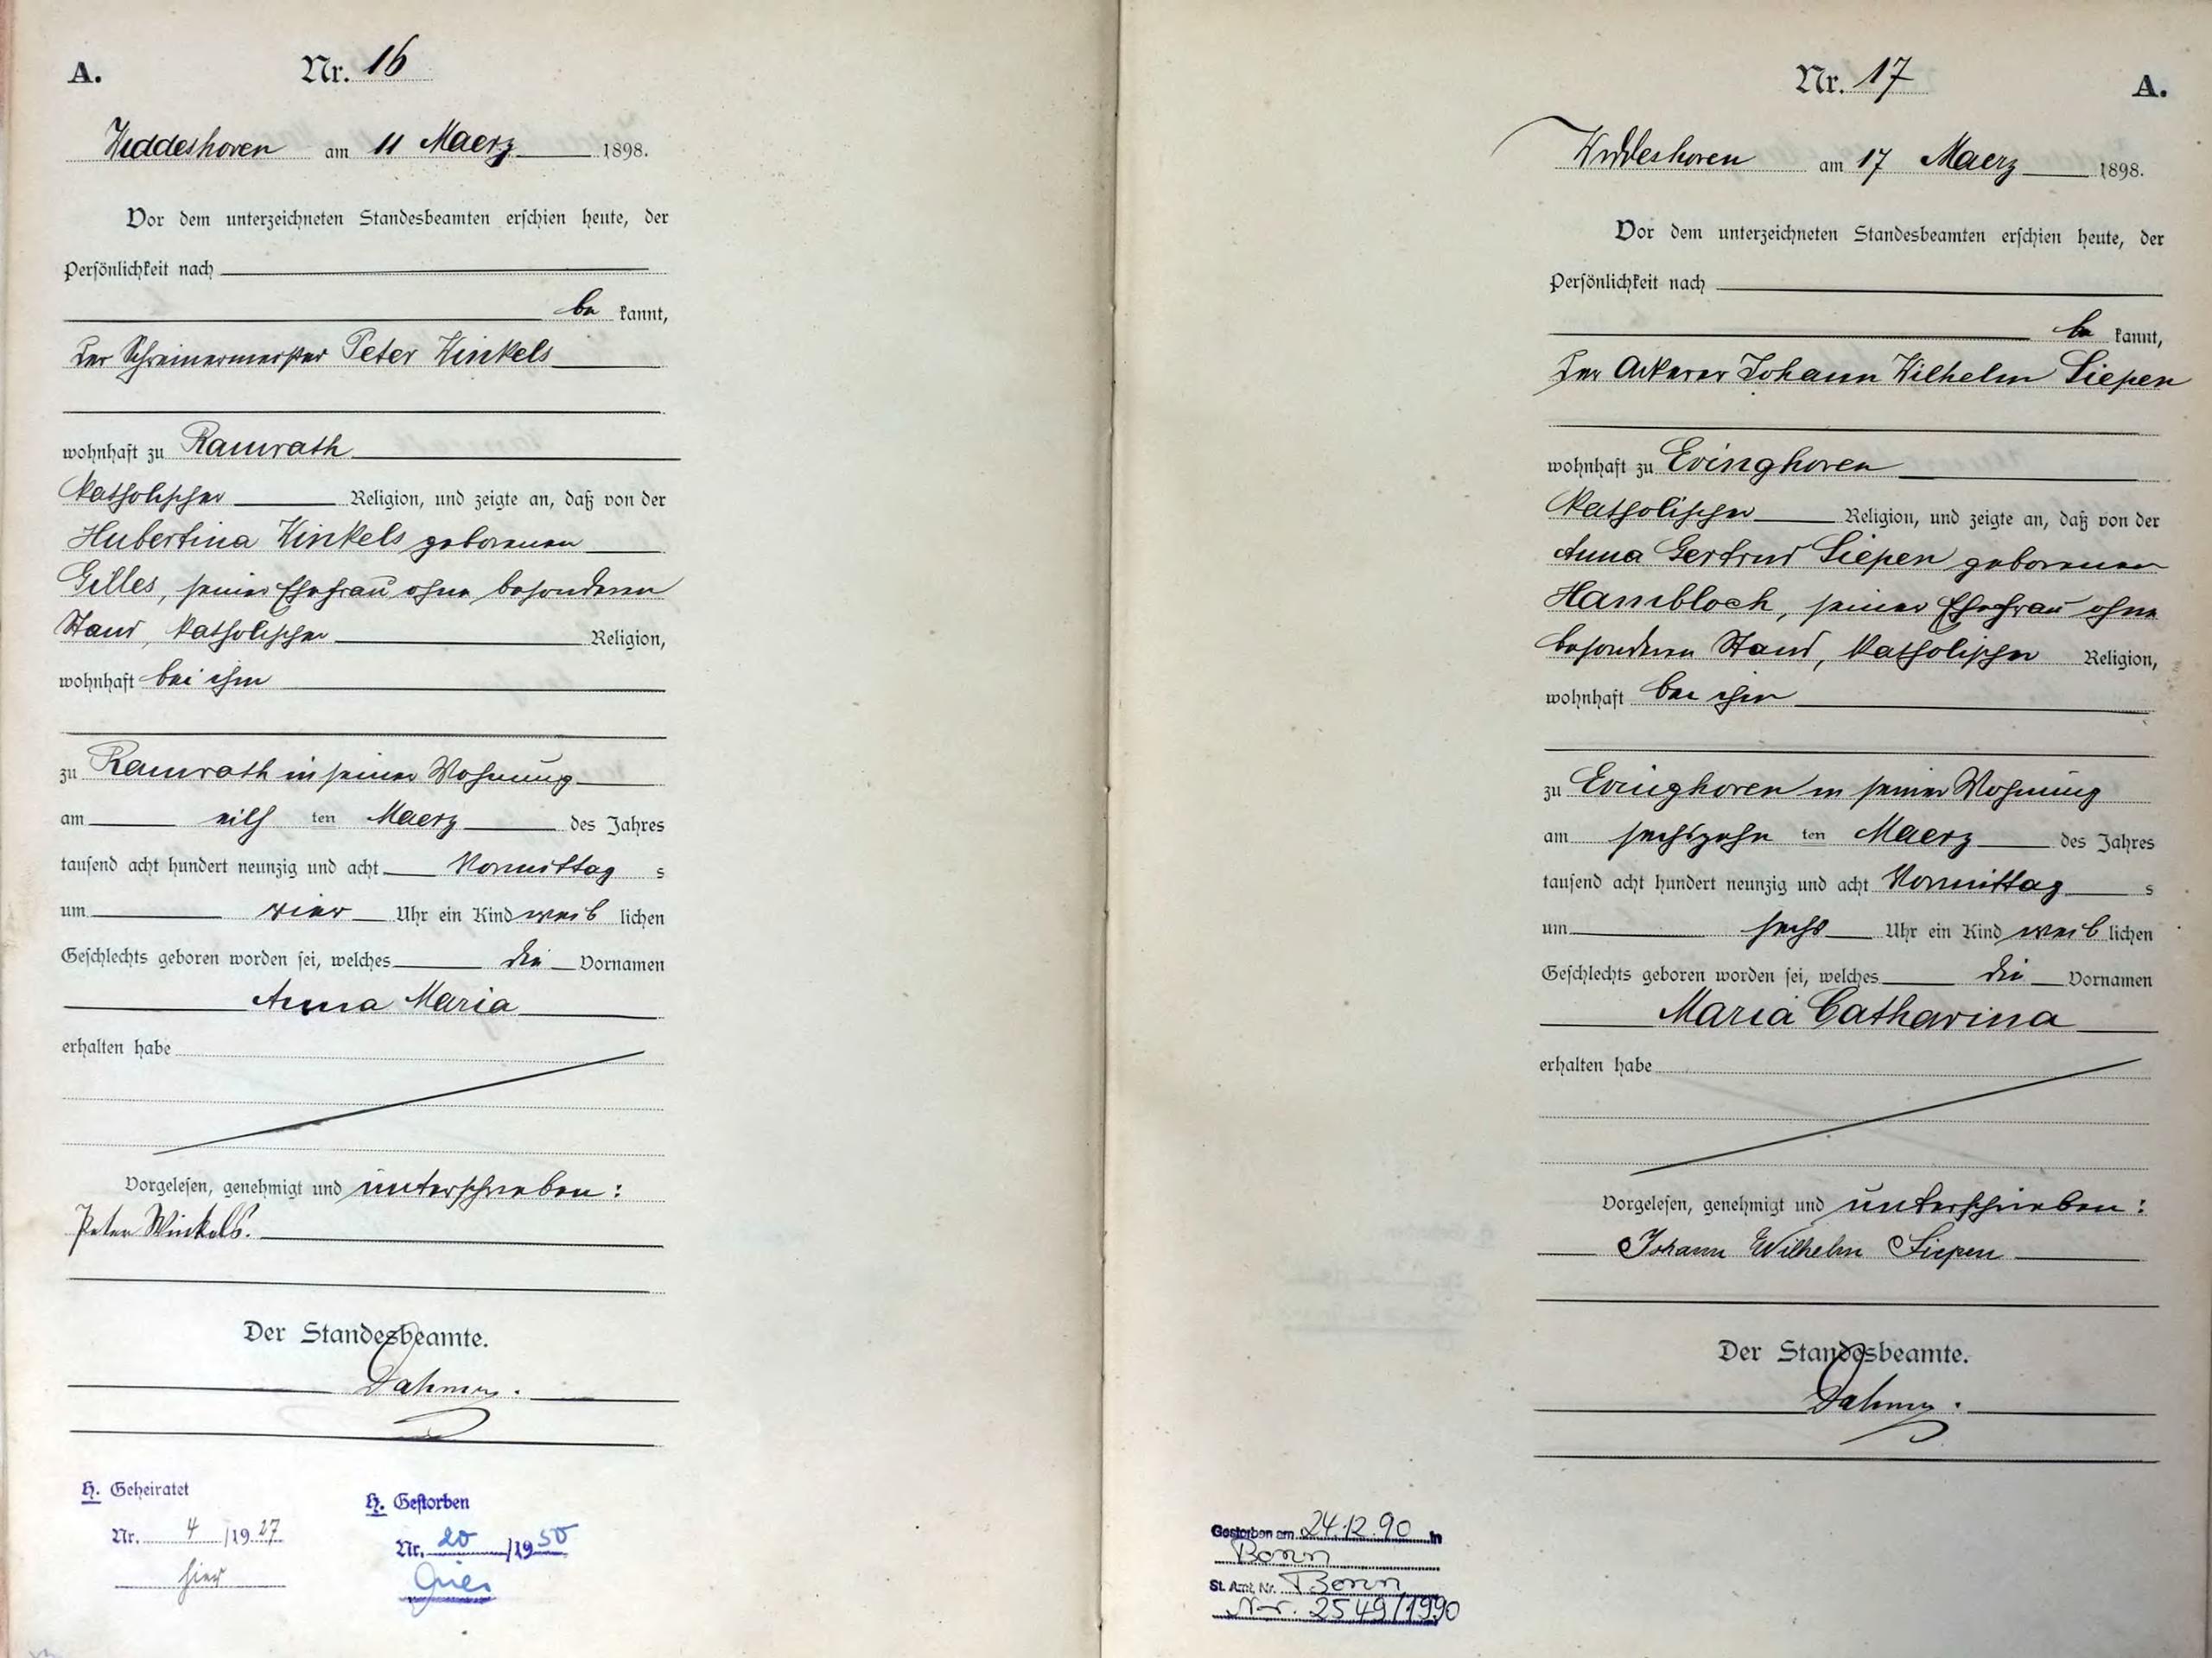 A. Nr. 16
Widdeshoven am 11 Maerz 1898.
Vor dem unterzeichneten Standesbeamten erschien heute, der
Persönlichkeit nach
be kannt,
der Schreinermeister Peter Winkels
wohnhaft zu Ramrath
katholischer Religion, und zeigte an, daß von der
Hubertina Winkels geborenen
Gilles, seiner Ehefrau ohne besonderen
Stand, katholischer Religion,
wohnhaft bei ihm
zu Ramrath in seiner Wohnung
am eilf ten Maerz des Jahres
tausend acht hundert neunzig und acht Vormittag s
um vier Uhr ein Kind weib lichen
Geschlechts geboren worden sei, welches die Vornamen
Anna Maria
erhalten habe
Vorgelesen, genehmigt und unterschrieben:
Peter Winkels.
Der Standesbeamte.
Dahmen.
H. Geheiratet
Nr. 4 /1927
hier
H. Gestorben
Nr. 20 /1950
Nr. 17 A.
Widdeshoven am 17 Maerz 1898.
Vor dem unterzeichneten Standesbeamten erschien heute, der
Persönlichkeit nach
be kannt,
der Ackerer Johann Wilhelm Siepen
wohnhaft zu Evinghoven
katholischer Religion, und zeigte an, daß von der
Anna Gertrud Siepen geborenen
Hambloch, seiner Ehefrau ohne
besonderen Stand, katholischer Religion,
wohnhaft bei ihm
zu Evinghoven in seiner Wohnung
am sechszehn ten Maerz des Jahres
tausend acht hundert neunzig und acht Vormittag s
um sechs Uhr ein Kind weib lichen
Geschlechts geboren worden sei, welches die Vornamen
Maria Catharina
erhalten habe
Vorgelesen, genehmigt und unterschrieben:
Johann Wilhelm Siepen
Der Standesbeamte.
Dahmen.
Gestorben am 24.12.90 in
Bonn
St. Amt, Nr. Bonn
Nr. 2549/1990